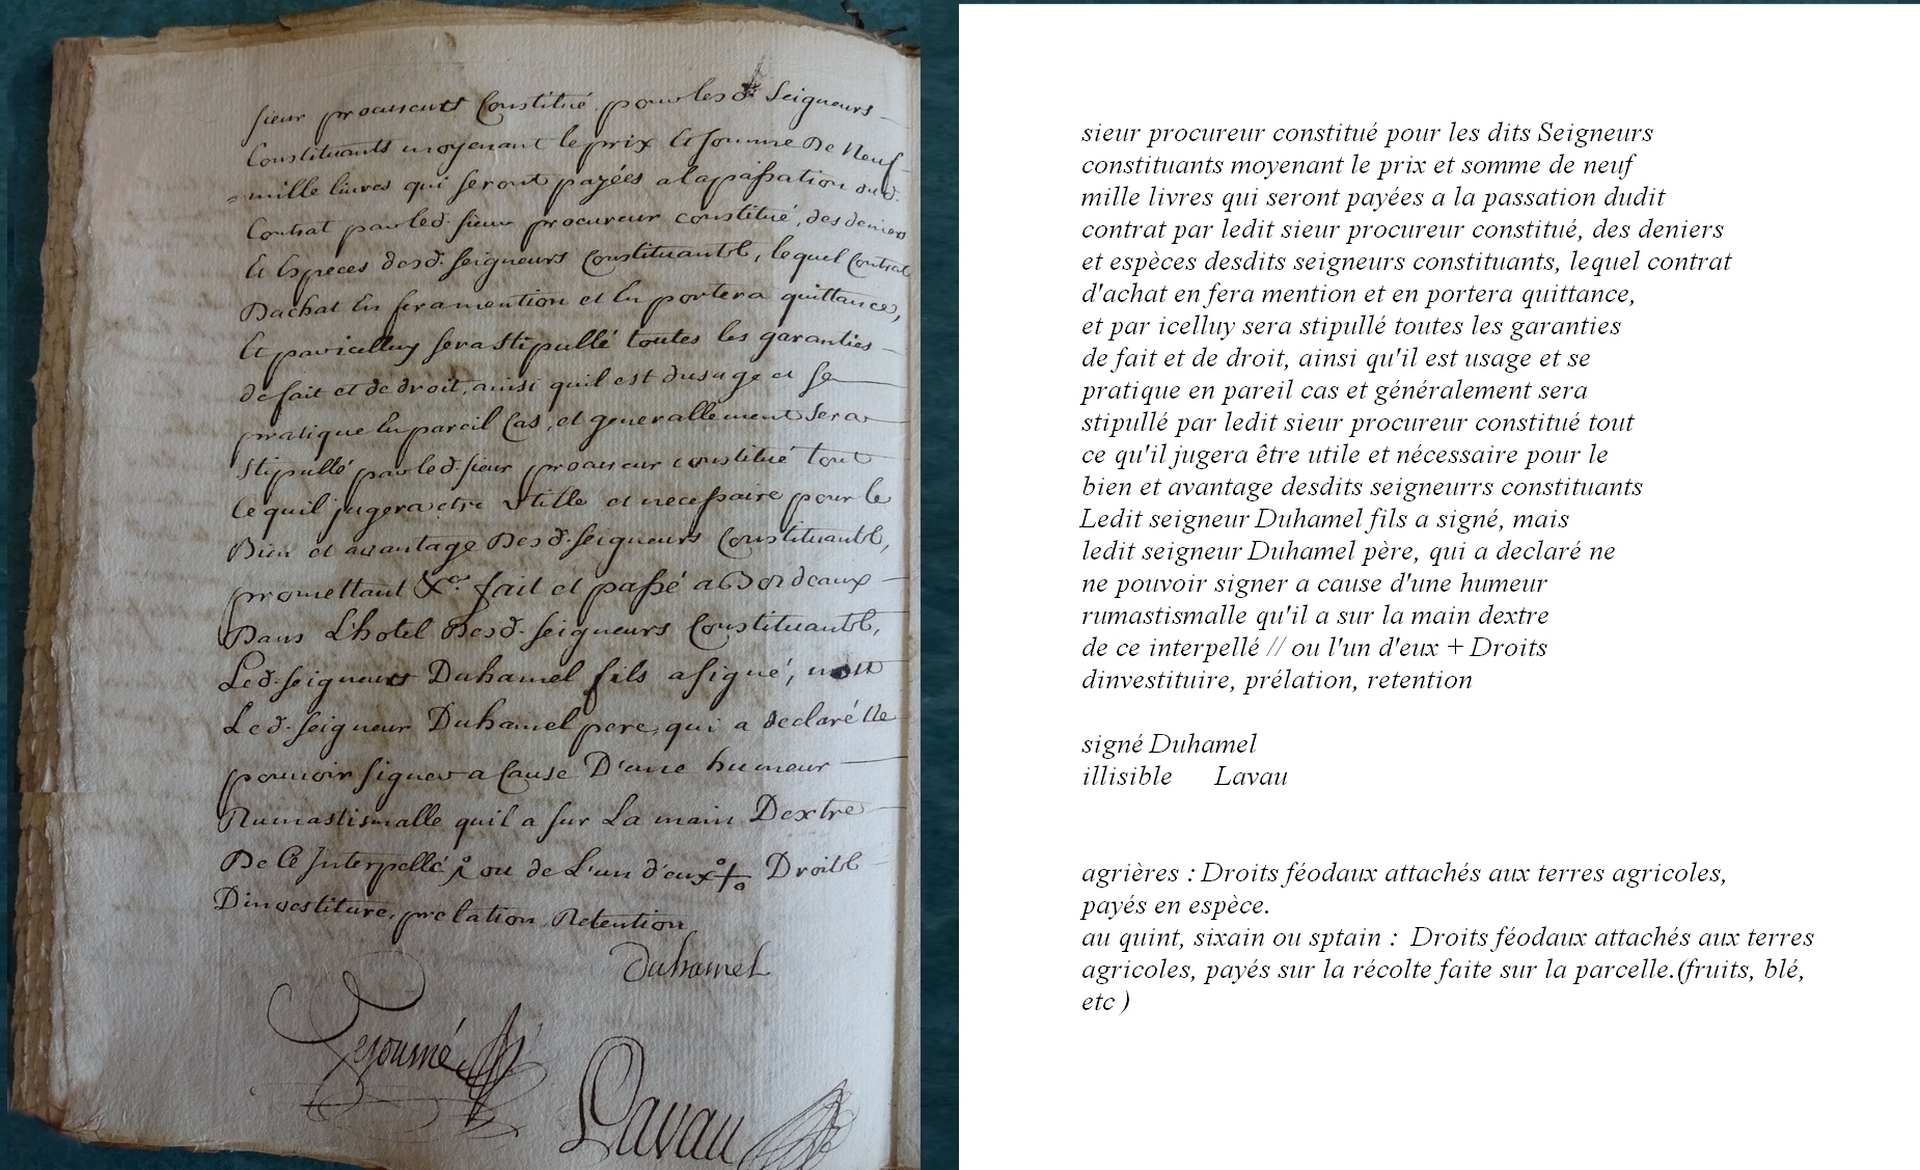 sieur procureur Constitué pour les d. Seigneurs
Constituants moyenant le prix Et somme De Neuf
mille livres qui seront payées a la passation dud.
Contrat par led. sieur procureur constitué, des deniers
Et Especes desd. seigneurs Constituants, lequel Contrat
Dachat En fera mention et En portera quittance,
Et par icelluy sera stipullé toutes les garanties
de fait et de droit, ainsi quil est dusage et se
pratique En pareil Cas, et generallement sera
stipullé par led. sieur procureur constitué tout
Ce quil jugera etre Utille et necessaire pour le
Bien et avantage Desd. seigneurs Constituants,
promettant &c. fait et passé a Bordeaux
Dans L'hotel Desd. seigneurs Constituants,
Led. seigneur Duhamel fils a signé, non
Led. seigneur Duhamel pere, qui a declaré Ne
pouvoir signer a Cause D'une humeur
Rumastismalle quil a sur La main Dextre
De Ce Interpellé ou de L'un d'eux + Droits
Dinvestiture, prelation, Retention
Duhamel
Sejourné
Lavau
sieur procureur constitué pour les dits Seigneurs
constituants moyenant le prix et somme de neuf
mille livres qui seront payées a la passation dudit
contrat par ledit sieur procureur constitué, des deniers
et espèces desdits seigneurs constituants, lequel contrat
d'achat en fera mention et en portera quittance,
et par icelluy sera stipullé toutes les garanties
de fait et de droit, ainsi qu'il est usage et se
pratique en pareil cas et généralement sera
stipullé par ledit sieur procureur constitué tout
ce qu'il jugera être utile et nécessaire pour le
bien et avantage desdits seigneurrs constituants
Ledit seigneur Duhamel fils a signé, mais
ledit seigneur Duhamel père, qui a declaré ne
ne pouvoir signer a cause d'une humeur
rumastismalle qu'il a sur la main dextre
de ce interpellé // ou l'un d'eux + Droits
dinvestituire, prélation, retention
signé Duhamel
illisible Lavau
agrières : Droits féodaux attachés aux terres agricoles,
payés en espèce.
au quint, sixain ou sptain : Droits féodaux attachés aux terres
agricoles, payés sur la récolte faite sur la parcelle.(fruits, blé,
etc )